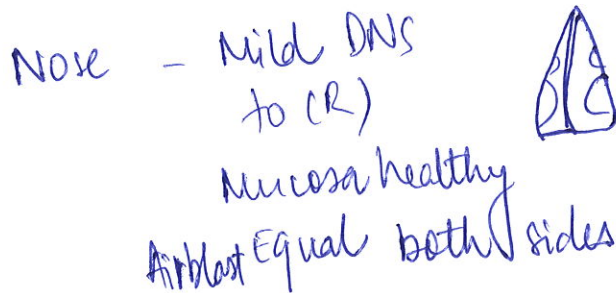 Nose - Mild DNS
to (R)
Mucosa healthy
Airblast Equal both sides